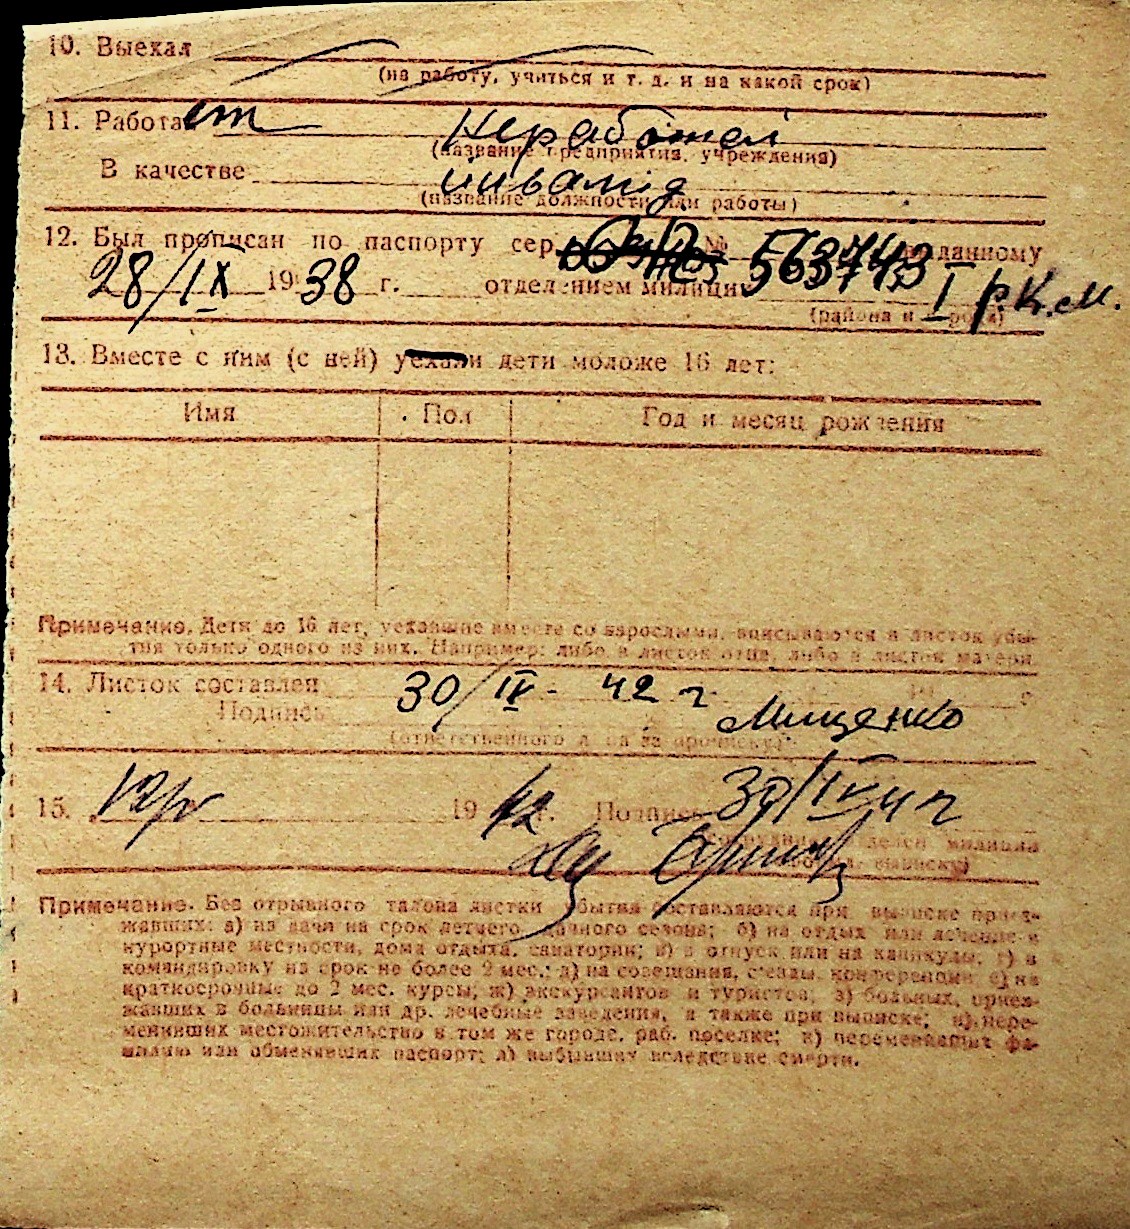 10. Выехал
(на работу, учиться и т. д. и на какой срок)
11. Работает неработает
(название предприятия, учреждения)
В качестве инвалид
(название должности или работы)
12. Был прописан по паспорту сер. № 563743 выданному
28/IX 1938 г. отделением милиции I р.К.М.
(района и города)
13. Вместе с ним (с ней) уехали дети моложе 16 лет:
Имя Пол Год и месяц рождения
Примечание. Дети до 16 лет, уехавшие вместе со взрослыми, вписываются в листок убы-
тия только одного из них. Например: либо в листок отца, либо в листок матери.
14. Листок составлен 30/IV - 42 г. 19 г.
Подпись Мищенко
(ответственного лица за прописку)
15. 19 42 г. Подпись 30/IV 42
(сотрудника отделен. милиции
выписку)
Примечание. Без отрывного талона листки убытия составляются при выписке приез-
жавших: а) на дачи на срок летнего дачного сезона; б) на отдых или лечение в
курортные местности, дома отдыха, санатории; в) в отпуск или на каникулы; г) в
командировку на срок не более 2 мес.; д) на совещания, съезды, конференции; е) на
краткосрочные до 2 мес. курсы; ж) экскурсантов и туристов; з) больных, приез-
жавших в больницы или др. лечебные заведения, а также при выписке; и) пере-
менивших местожительство в том же городе, раб. поселке; к) переменивших фа-
милию или обменявших паспорт; л) выбывших вследствие смерти.